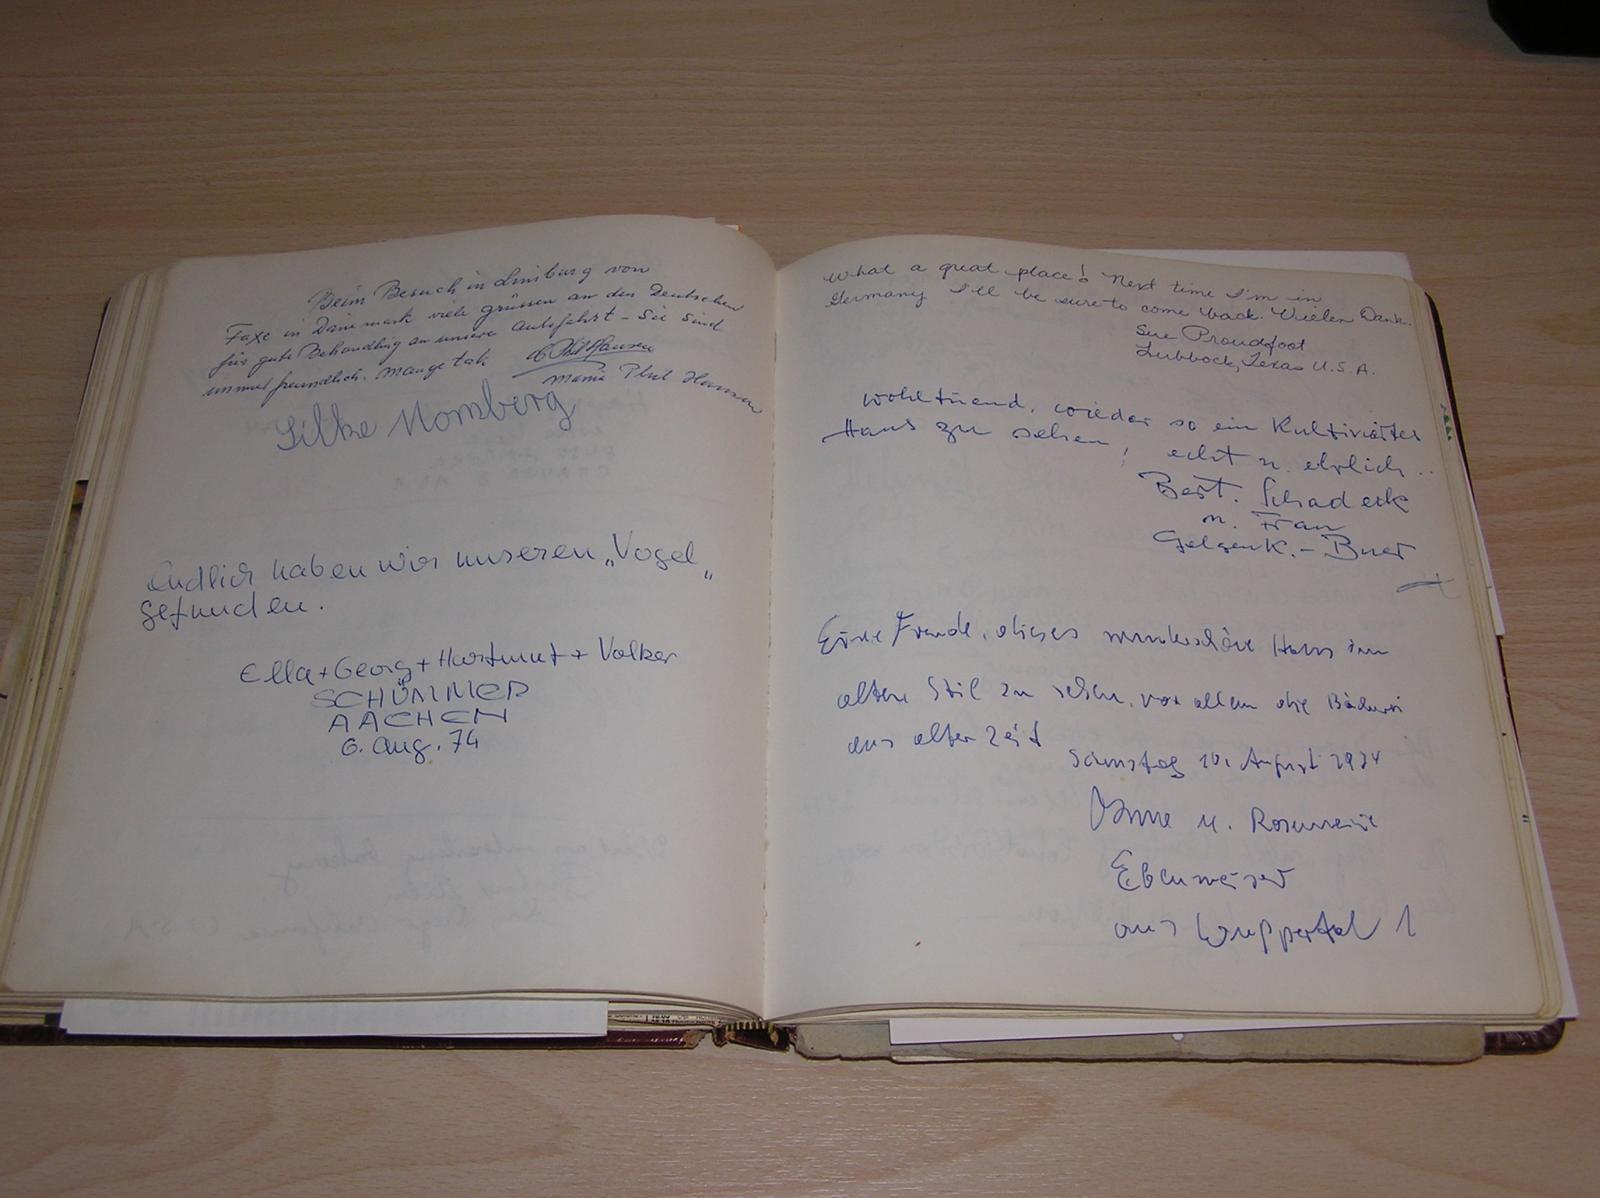 Beim Besuch in Limburg von
Faxe in Dänemark viele grüssen an den Deutschen
für gute Behandlung an unsere Autofahrt - Sie sind
immer freundlich. Mange tak
Hansen
Silke Momberg
Endlich haben wir unseren „Vogel„
gefunden.
Ella + Georg + Hartmut + Volker
SCHÜMMER
AACHEN
6. Aug. 74
What a great place! Next time I'm in
Germany I'll be sure to come back. Vielen Dank.
Sue Proudfoot
Lubbock, Texas U.S.A.
wohltuend, wieder so ein kultiviertes
Haus zu sehen, echt u. ehrlich..
Bert. Schadeck
u. Frau
Gelsenk. - Buer
Eine Freude, dieses wunderschöne Haus im
alten Stil zu sehen, vor allem die Bäckerei
aus alter Zeit
Samstag 10. August 1974
u. Rosemarie
Ebenmeiser
aus Wuppertal 1